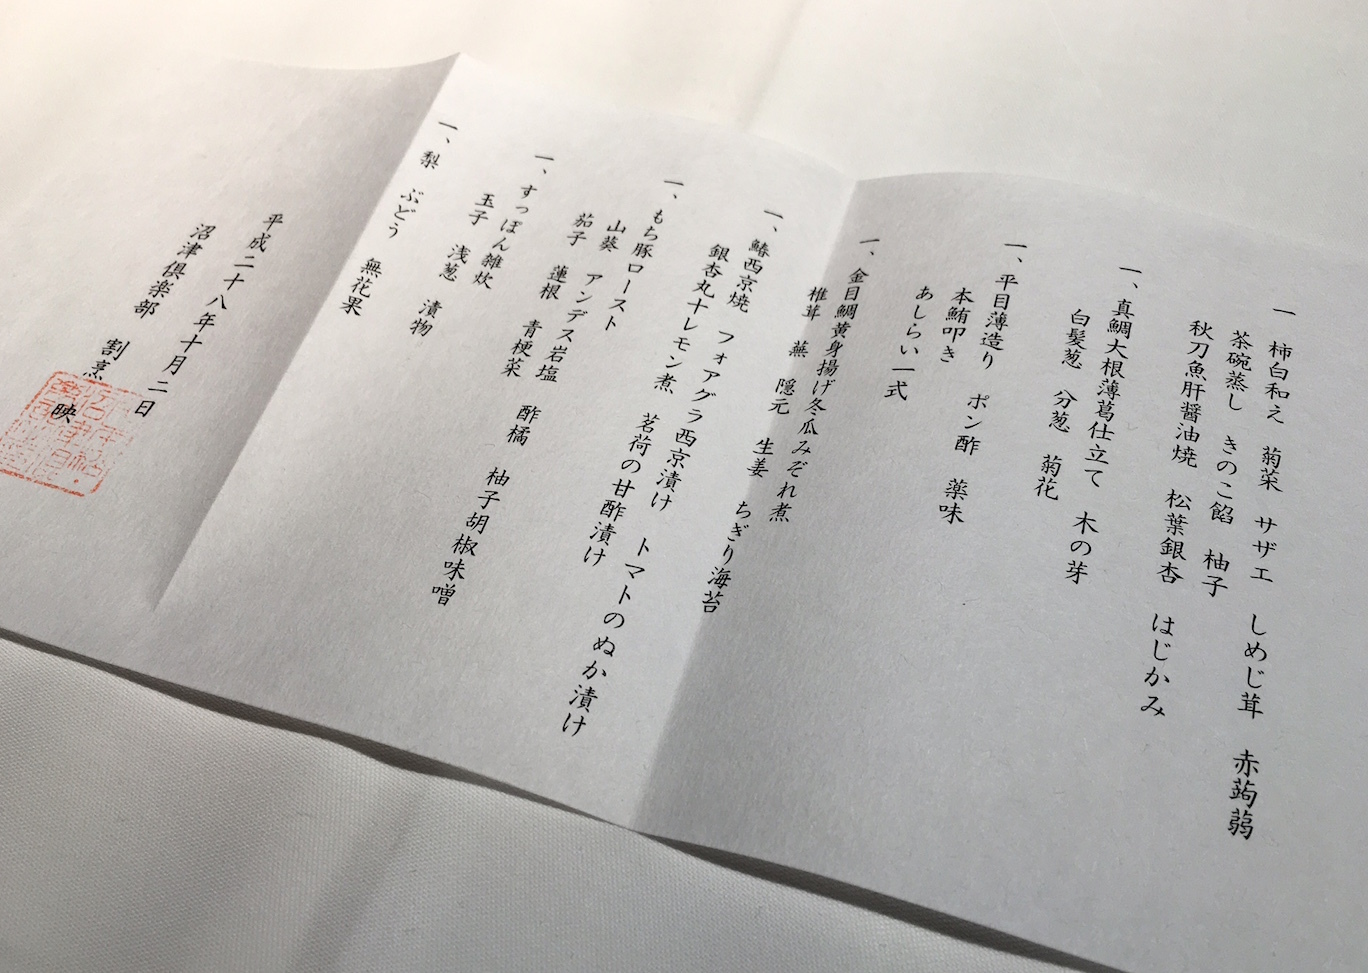 一 柿白和え 菊菜 サザエ しめじ茸 赤蒟蒻
茶碗蒸し きのこ餡 柚子
秋刀魚肝醤油焼 松葉銀杏 はじかみ
一、真鯛大根薄葛仕立て 木の芽
白髪葱 分葱 菊花
一、平目薄造り ポン酢 薬味
本鮪叩き
あしらい一式
一、金目鯛黄身揚げ冬瓜みぞれ煮
椎茸 蕪 隠元 生姜 ちぎり海苔
一、鰆西京焼 フォアグラ西京漬け トマトのぬか漬け
銀杏丸十レモン煮 茗荷の甘酢漬け
一、もち豚ロースト
山葵 アンデス岩塩 酢橘 柚子胡椒味噌
茄子 蓮根 青梗菜
一、すっぽん雑炊
玉子 浅葱 漬物
一、梨 ぶどう 無花果
平成二十八年十月二日
沼津倶楽部 割烹 映